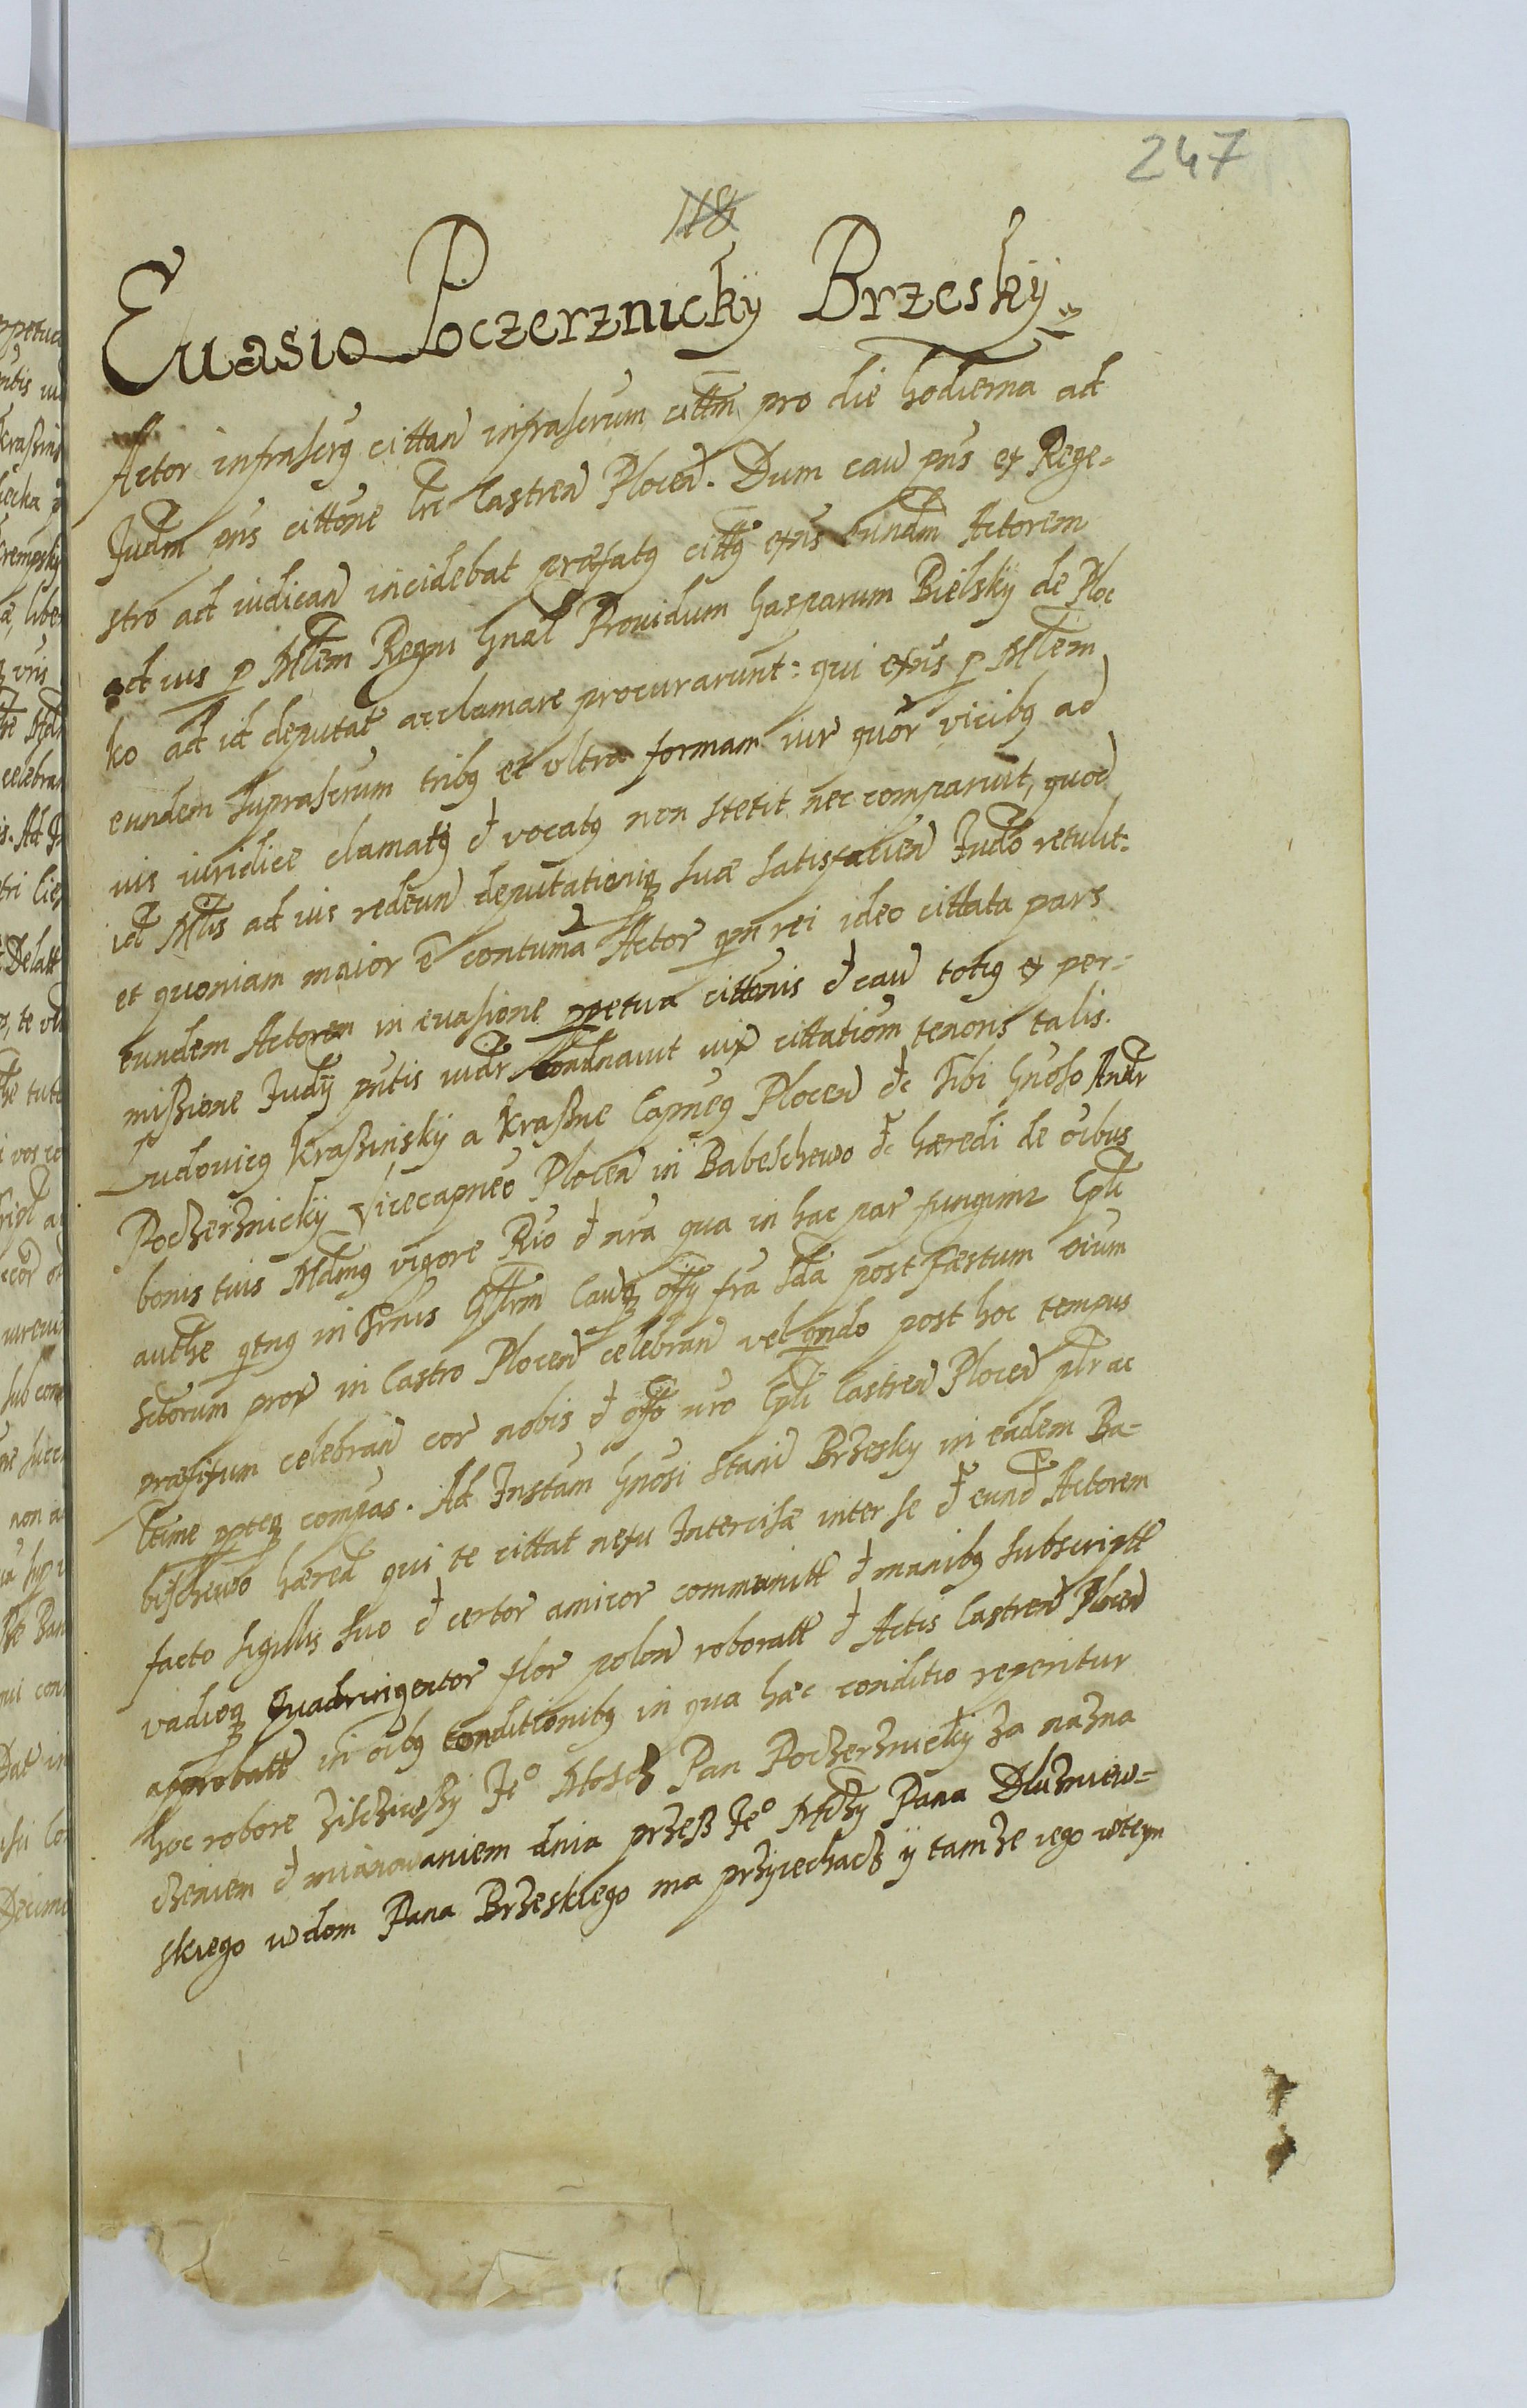 247
118
Euasio Poczerznickÿ Brzeskÿ
Actor infrascrꝯ cittan infrascrum cittm pro die hodierna ad
Judm pns cittone lre Castren Plocen. Dum cau pns ex Rege-
stro ad iudican incidebat præfatꝯ cittꝯ exns eundm Actorem
ad ius p Mlem Regni Gnal Prouidum Gasparum Bielskÿ de Ploc
ko ad id deputat acclamare procurarunt: qui exns p Mlem
eundem suprascrum tribꝯ et vltra formam iur quor vicibꝯ ad
ius iuridice clamatꝯ et vocatꝯ non stetit nec comparuit, quod
id Mlis ad ius redeun deputationiqꝫ suæ satisfacien Judo retulit.
et quoniam maior e contuma Actor qm rei ideo cittata pars
eundem Actorem in euasione ppetua cittonis et cau totiꝯ ex per-
missione Judÿ pntis iudr condnauit iux cittationm tenoris talis.
Ludouicꝯ Krasinskÿ a Krasne Capneꝯ Plocen etc Tibi Gnoso Andr
Poczerznickÿ Vicecapneo Plocen in Babeschewo etc hæredi de oibus
bonis tuis Mdmꝯ vigore Rio et nra qua in hac par fungimr Cpli
authe qtnꝯ in Trnis Qstrm Cauqꝫ offÿ fra 2da post fæstum oium
Sctorum prox in Castro Plocen celebran vel qndo post hoc tempus
præfixum celebran cor nobis et offo nro Cpli Castren Plocen plr ac
ltime ppteqꝫ compas. Ad Instam Gnosi Stani Brzesky in eadem Ba-
bischewo hæred qui te cittat nexu Intercisæ inter se et eund Actorem
facto sigillis suo et certor amicor communitt et manibꝯ subscriptt
vadioqꝫ Quadringentor flor polon roboratt et Actis Castren Plocen
approbatt in oibꝯ conditionibꝯ in qua hæc conditio reperitur
hoc robore zisciwszy Jeo Mosch Pan Poczerznickÿ za nazna
czeniem et mianowaniem dnia przesz Jeo Mczy Pana Dluzniew-
skiego w dom Pana Brzeskiego ma przÿiechacz ÿ tamze iego wteÿm